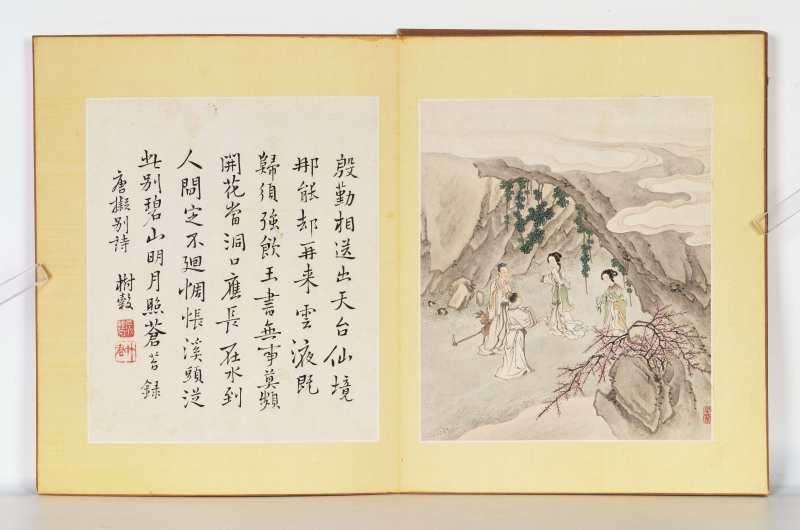 殷勤相送出天台仙境
那能却再来雲液既
歸須強飲玉書無事莫頻
開花當洞口應長在水到
人間定不迴惆悵溪頭從
此別碧山明月照蒼苔錄
唐擬別詩 樹穀